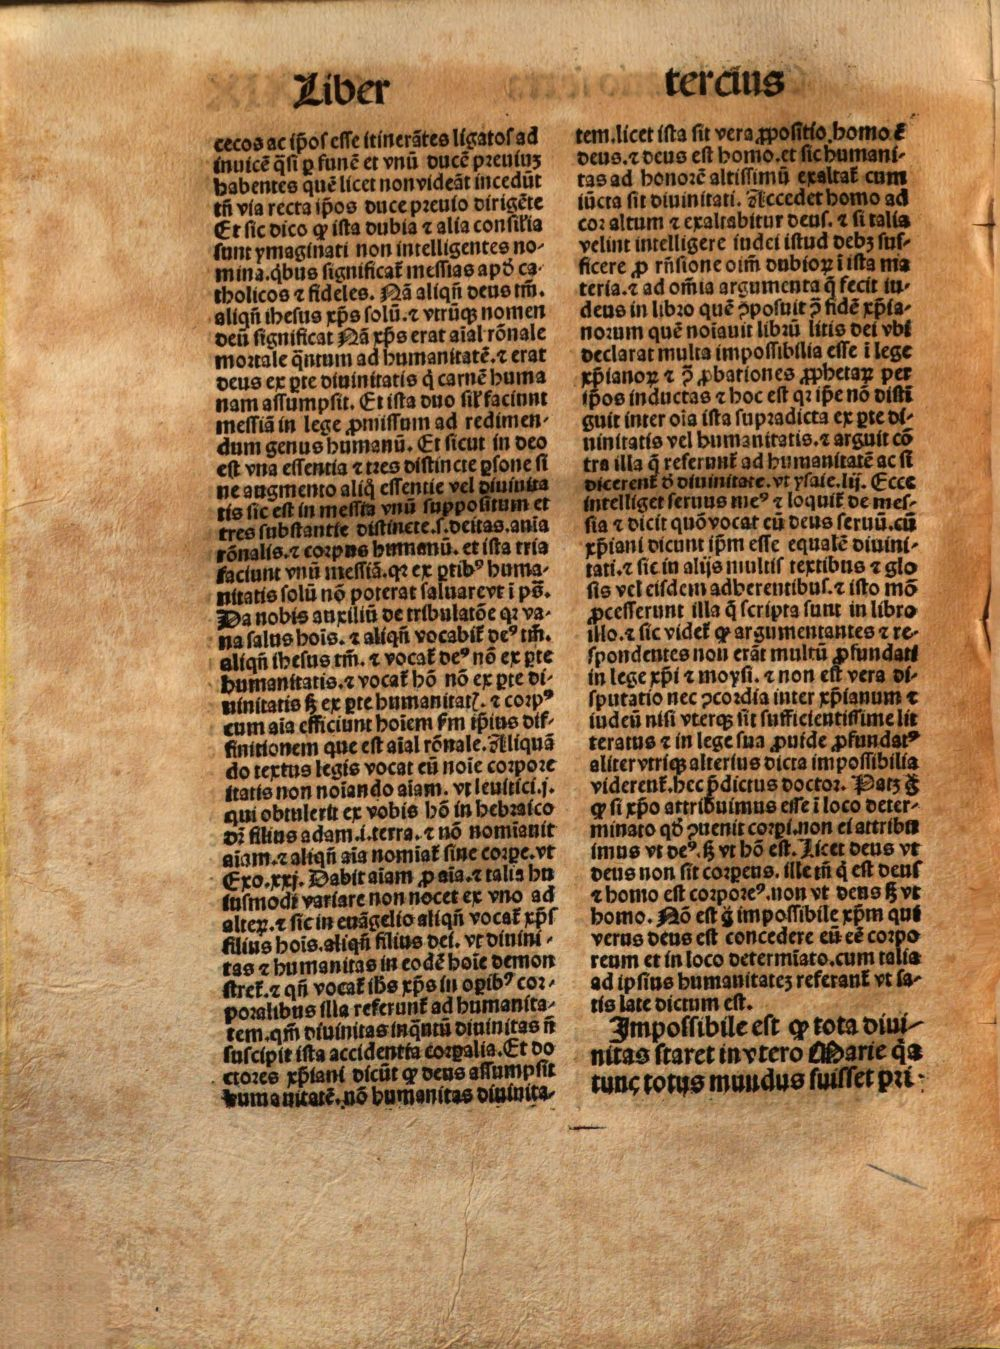 Liber tercius
cecos ac ip̄os esse itinerātes ligatos ad
inuicē q̄si ꝑ funē et vnū ducē preuiuꝫ
habentes quē licet non videāt incedūt
tn̄ via recta ip̄os duce preuio dirigēte
Et sic dico ꝙ ista dubia ⁊ alia consil'ia
sunt ymaginati non intelligentes no-
mina.q̄bus significat̄ messias apđ ca-
tholicos ⁊ fideles. Nā aliqn̄ deus tm̄.
aliqn̄ ihesus xp̄s solū.⁊ vtrūqꝫ nomen
deū significat Nā xp̄s erat aīal rōnale
mortale q̄ntum ad humanitatē.⁊ erat
deus ex ꝑte diuinitatis q̇ carnē huma
nam assumpsit. Et ista duo sil' faciunt
messiā in lege ꝓmissum ad redimen-
dum genus humanū. Et sicut in deo
est vna essentia ⁊ tres distincte ꝑsone si
ne augmento aliq̇ essentie vel diuinita
tis sic est in messia vnū suppositum et
tres substantie distincte.s.deitas.anīa
rōnalis.⁊ corpus humanū. et ista tria
faciunt vnū messiā.qꝛ ex ꝑtibꝰ huma-
nitatis solū nō poterat saluare vt ī ps̄.
Da nobis auxiliū de tribulatōe qꝛ va-
na salus hoīs. ⁊ aliqn̄ vocabit̄ deꝰ tm̄.
aliqn̄ ihesus tm̄. ⁊ vocat̄ deꝰ nō ex ꝑte
humanitatis.⁊ vocat̄ hō nō ex ꝑte di-
uinitatis ꝫ̄ ex ꝑte humanitatꝭ. ⁊ corpꝰ
cum aīa efficiunt hoīem fm̄ ip̄ius dif-
finitionem que est aīal rōnale. Aliquā
do textus legis vocat eū noīe corpore
itatis non noīando aīam. vt leuitici.j.
qui obtulerit ex vobis hō in hebraico
dr̄ filius adam.i.terra.⁊ nō nomīauit
aīam.⁊ aliqn̄ aīa nomīat̄ sine corꝑe.vt
Exo.xxj. Dabit aīam ꝓ aīa.⁊ talia hu
iusmodi variare non nocet ex vno ad
alteꝝ.⁊ sic in euāgelio aliqn̄ vocat̄ xp̄s
filius hoīs.aliqn̄ filius dei. vt diuini-
tas ⁊ humanitas in eodē hoīe demon
stret̄.⁊ qn̄ vocat̄ ih̄s xp̄s in oꝑibꝰ cor-
poralibus illa referunt̄ ad humanita-
tem.qm̄ diuinitas inq̄ntū diuinitas n̄
suscipit ista accidentia corꝑalia.Et do
ctores xp̄iani dicūt ꝙ deus assumpsit
humanitatē.nō humanitas diuinita-
tem.licet ista sit vera ꝓpositio.homo ē
deus.⁊ deus est homo.et sic humani-
tas ad honorē altissimū exaltat̄ cum
iūcta sit diuinitati. Accedet homo ad
cor altum ⁊ exaltabitur deus. ⁊ si talia
velint intelligere iudei istud debꝫ suf-
ficere ꝓ rn̄sione oīm dubioꝝ ī ista ma
teria.⁊ ad om̄ia argumenta q̄ fecit iu-
deus in libro quē ꝯposuit ꝯ̄ fidē xp̄ia-
norum quē noīauit librū litis dei vbi
declarat multa impossibilia esse ī lege
xp̄ianoꝝ ⁊ ꝯ̄ ꝓbationes ꝓphetaꝝ per
ip̄os inductas ⁊ hoc est qꝛ ip̄e nō distī
guit inter oīa ista supradicta ex ꝑte di-
uinitatis vel humanitatis.⁊ arguit cō
tra illa q̄ referunt̄ ad humanitatē ac si
dicerent̄ đ diuinitate.vt ysaie.lij. Ecce
intelliget seruus meꝰ ⁊ loquit̄ de mes-
sia ⁊ dicit quō vocat eū deus seruū.cū
xp̄iani dicunt ip̄m esse equalē diuini-
tati.⁊ sic in alijs multis textibus ⁊ glo
sis vel eisdem adherentibus.⁊ isto mō
ꝓcesserunt illa q̄ scripta sunt in libro
illo.⁊ sic videt̄ ꝙ argumentantes ⁊ re-
spondentes non erāt multū ꝓfundati
in lege xp̄i ⁊ moysi. ⁊ non est vera di-
sputatio nec ꝯcordia inter xp̄ianum ⁊
iudeū nisi vterqꝫ sit sufficientissime lit
teratus ⁊ in lege sua ꝓuide ꝓfundatꝰ
aliter vtriqꝫ alterius dicta impossibilia
viderent̄.hec p̄dictus doctor. Patꝫ g̊
ꝙ si xp̄o attribuimus esse ī loco deter-
minato qđ ꝯuenit corpi.non ei attribu
imus vt deꝰ.ꝫ̄ vt hō est. Licet deus vt
deus non sit corpeus. ille tn̄ q̇ est deus
⁊ homo est corporeꝰ.non vt deus ꝫ̄ vt
homo. Nō est g̊ impossibile xp̄m qui
verus deus est concedere eū eē corpo
reum et in loco determīato.cum talia
ad ipsius humanitateꝫ referant̄ vt sa-
tis late dictum est.
Impossibile est ꝙ tota diui-
nitas staret in vtero Marie q̇a
tunc totus mundus fuisset pri-